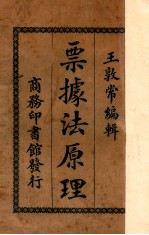 王敦常編輯
票據法原理
商務印書館發行